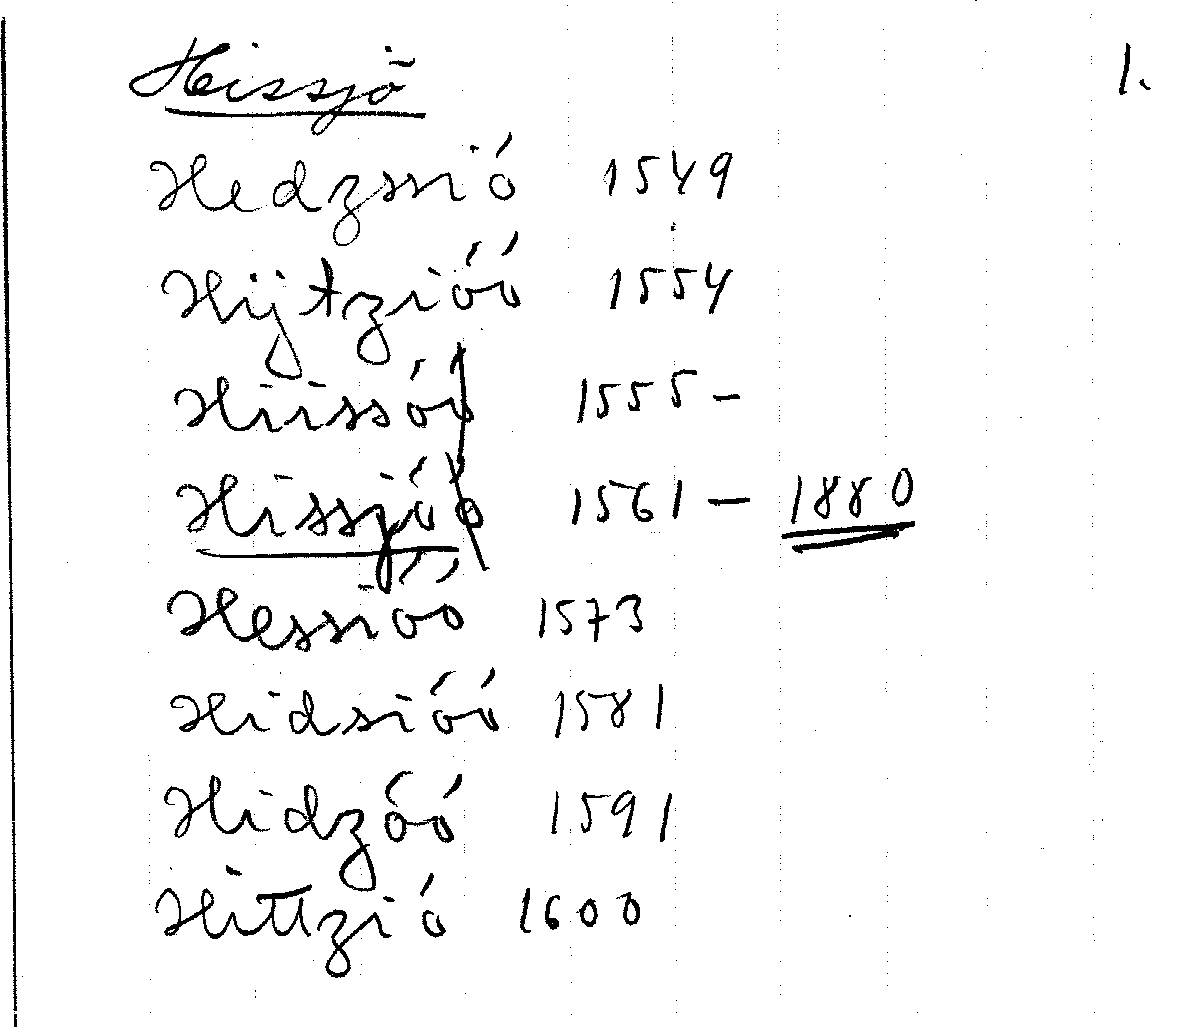 Hissjö 1.
Hedzssió 1549
Hijtzióó 1554
Hiissó 1555-
Hissjó 1561 - 1880
Hessióó 1573
Hidsióó 1581
Hidzóó 1591
Hittzió 1600